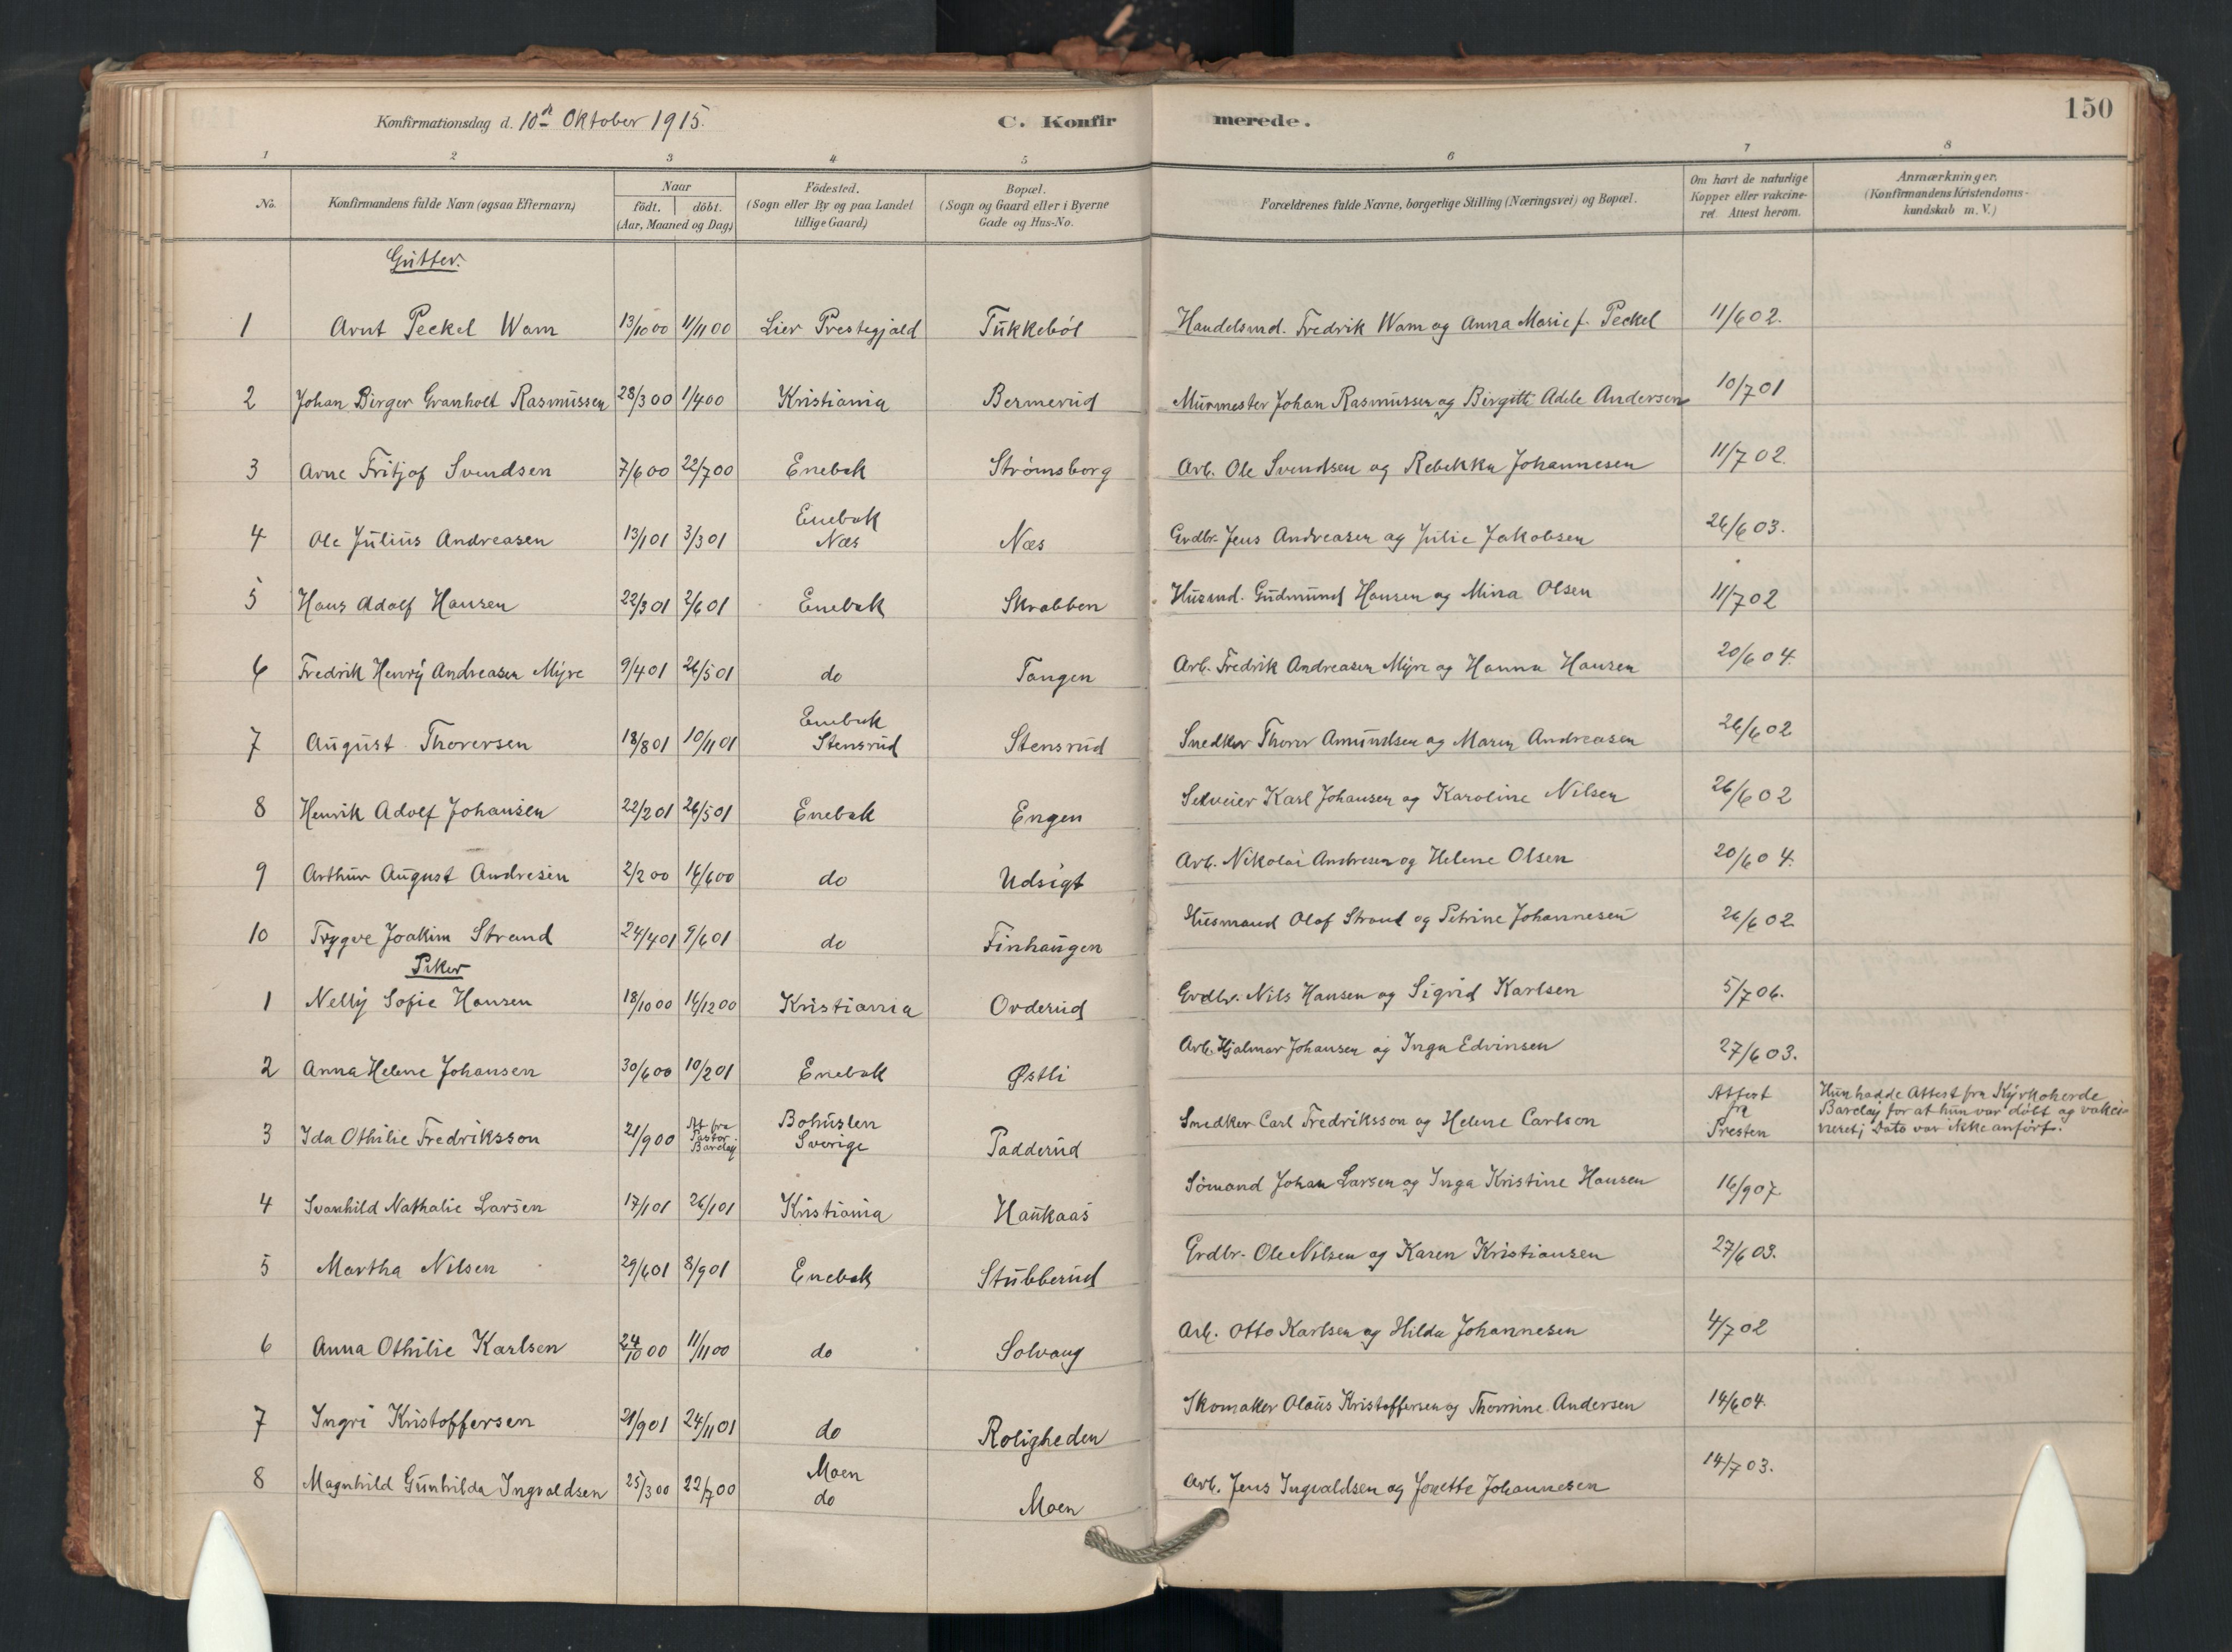 150
Konfirmationsdag d. 10de Oktober 1915.
C. Konfirmerede.
1 2 3 4 5 6 7 8
No. Konfirmandens fulde Navn (ogsaa Efternavn) Naar födt. döbt. (Aar, Maaned og Dag) Födested. (Sogn eller By og paa Landet tillige Gaard) Bopæl. (Sogn og Gaard eller i Byerne Gade og Hus-No. Forældrenes fulde Navne, borgerlige Stilling (Næringsvei) og Bopæl. Om havt de naturlige Kopper eller vakcineret. Attest herom. Anmærkninger. (Konfirmandens Kristendomskundskab m. V.)
Gutter.
1 Arnt Peckel Wam 13/10 00 11/11 00 Lier Prestegjald Tukkeböl Handelsmd. Fredrik Wam og Anna Marie f. Peckel 11/6 02.
2 Johan Birger Granholt Rasmussen 28/3 00 1/4 00 Kristiania Bermerud Murmester Johan Rasmussen og Birgitte Adele Andersen 10/7 01
3 Arne Fritjof Svendsen 7/6 00 22/7 00 Enebak Strömsborg Arb. Ole Svendsen og Rebekka Johannesen 11/7 02.
4 Ole Julius Andreasen 13/1 01 3/3 01 Enebak Næs Næs Grdbr. Jens Andreasen og Julie Jakobsen 26/6 03.
5 Hans Adolf Hansen 22/3 01 2/6 01 Enebak Skrabben Husmd. Gudmund Hansen og Mina Olsen 11/7 02
6 Fredrik Henry Andreasen Myre 9/4 01 26/5 01 do Tangen Arb. Fredrik Andreasen Myre og Hanna Hansen 20/6 04.
7 August Thorersen 18/8 01 10/11 01 Enebak Stensrud Stensrud Snedker Thorer Amundsen og Maren Andreasen 26/6 02
8 Henrik Adolf Johansen 22/2 01 26/5 01 Enebak Engen Selveier Karl Johansen og Karoline Nilsen 26/6 02
9 Arthur August Andresen 2/2 00 16/6 00 do Udsigt Arb. Nikolai Andresen og Helene Olsen 20/6 04.
10 Trygve Joakim Strand 24/4 01 9/6 01 do Finhaugen Husmand Olaf Strand og Petrine Johannesen 26/6 02
Piker
1 Nelly Sofie Hansen 18/10 00 16/12 00 Kristiania Ovderud Grdbr. Nils Hansen og Sigrid Karlsen 5/7 06.
2 Anna Helene Johansen 30/6 00 10/2 01 Enebak Østli Arb. Hjalmar Johansen og Inga Edvinsen 27/6 03.
3 Ida Othilie Fredriksson 21/9 00 At fra Pastor Barclay Bohuslen Sverige Padderud Snedker Carl Fredriksson og Helene Carlson Attest fra Presten Hun hadde Attest fra Kyrkoherde Barclay for at hun var döbt og vakcineret; Dato var ikke anfört.
4 Svanhild Nathalie Larsen 17/1 01 26/1 01 Kristiania Haukaas Sömand Johan Larsen og Inga Kristine Hansen 16/9 07
5 Martha Nilsen 29/6 01 8/9 01 Enebak Stubberud Grdbr. Ole Nilsen og Karen Kristiansen 27/6 03.
6 Anna Othilie Karlsen 24/10 00 11/11 00 do Solvang Arb. Otto Karlsen og Hilda Johannesen 4/7 02
7 Ingri Kristoffersen 21/9 01 24/11 01 do Roligheden Skomaker Olaus Kristoffersen og Thorine Andersen 14/6 04.
8 Magnhild Gunhilda Ingvaldsen 25/3 00 22/7 00 Moen do Moen Arb. Jens Ingvaldsen og Jonette Johannesen 14/7 03.